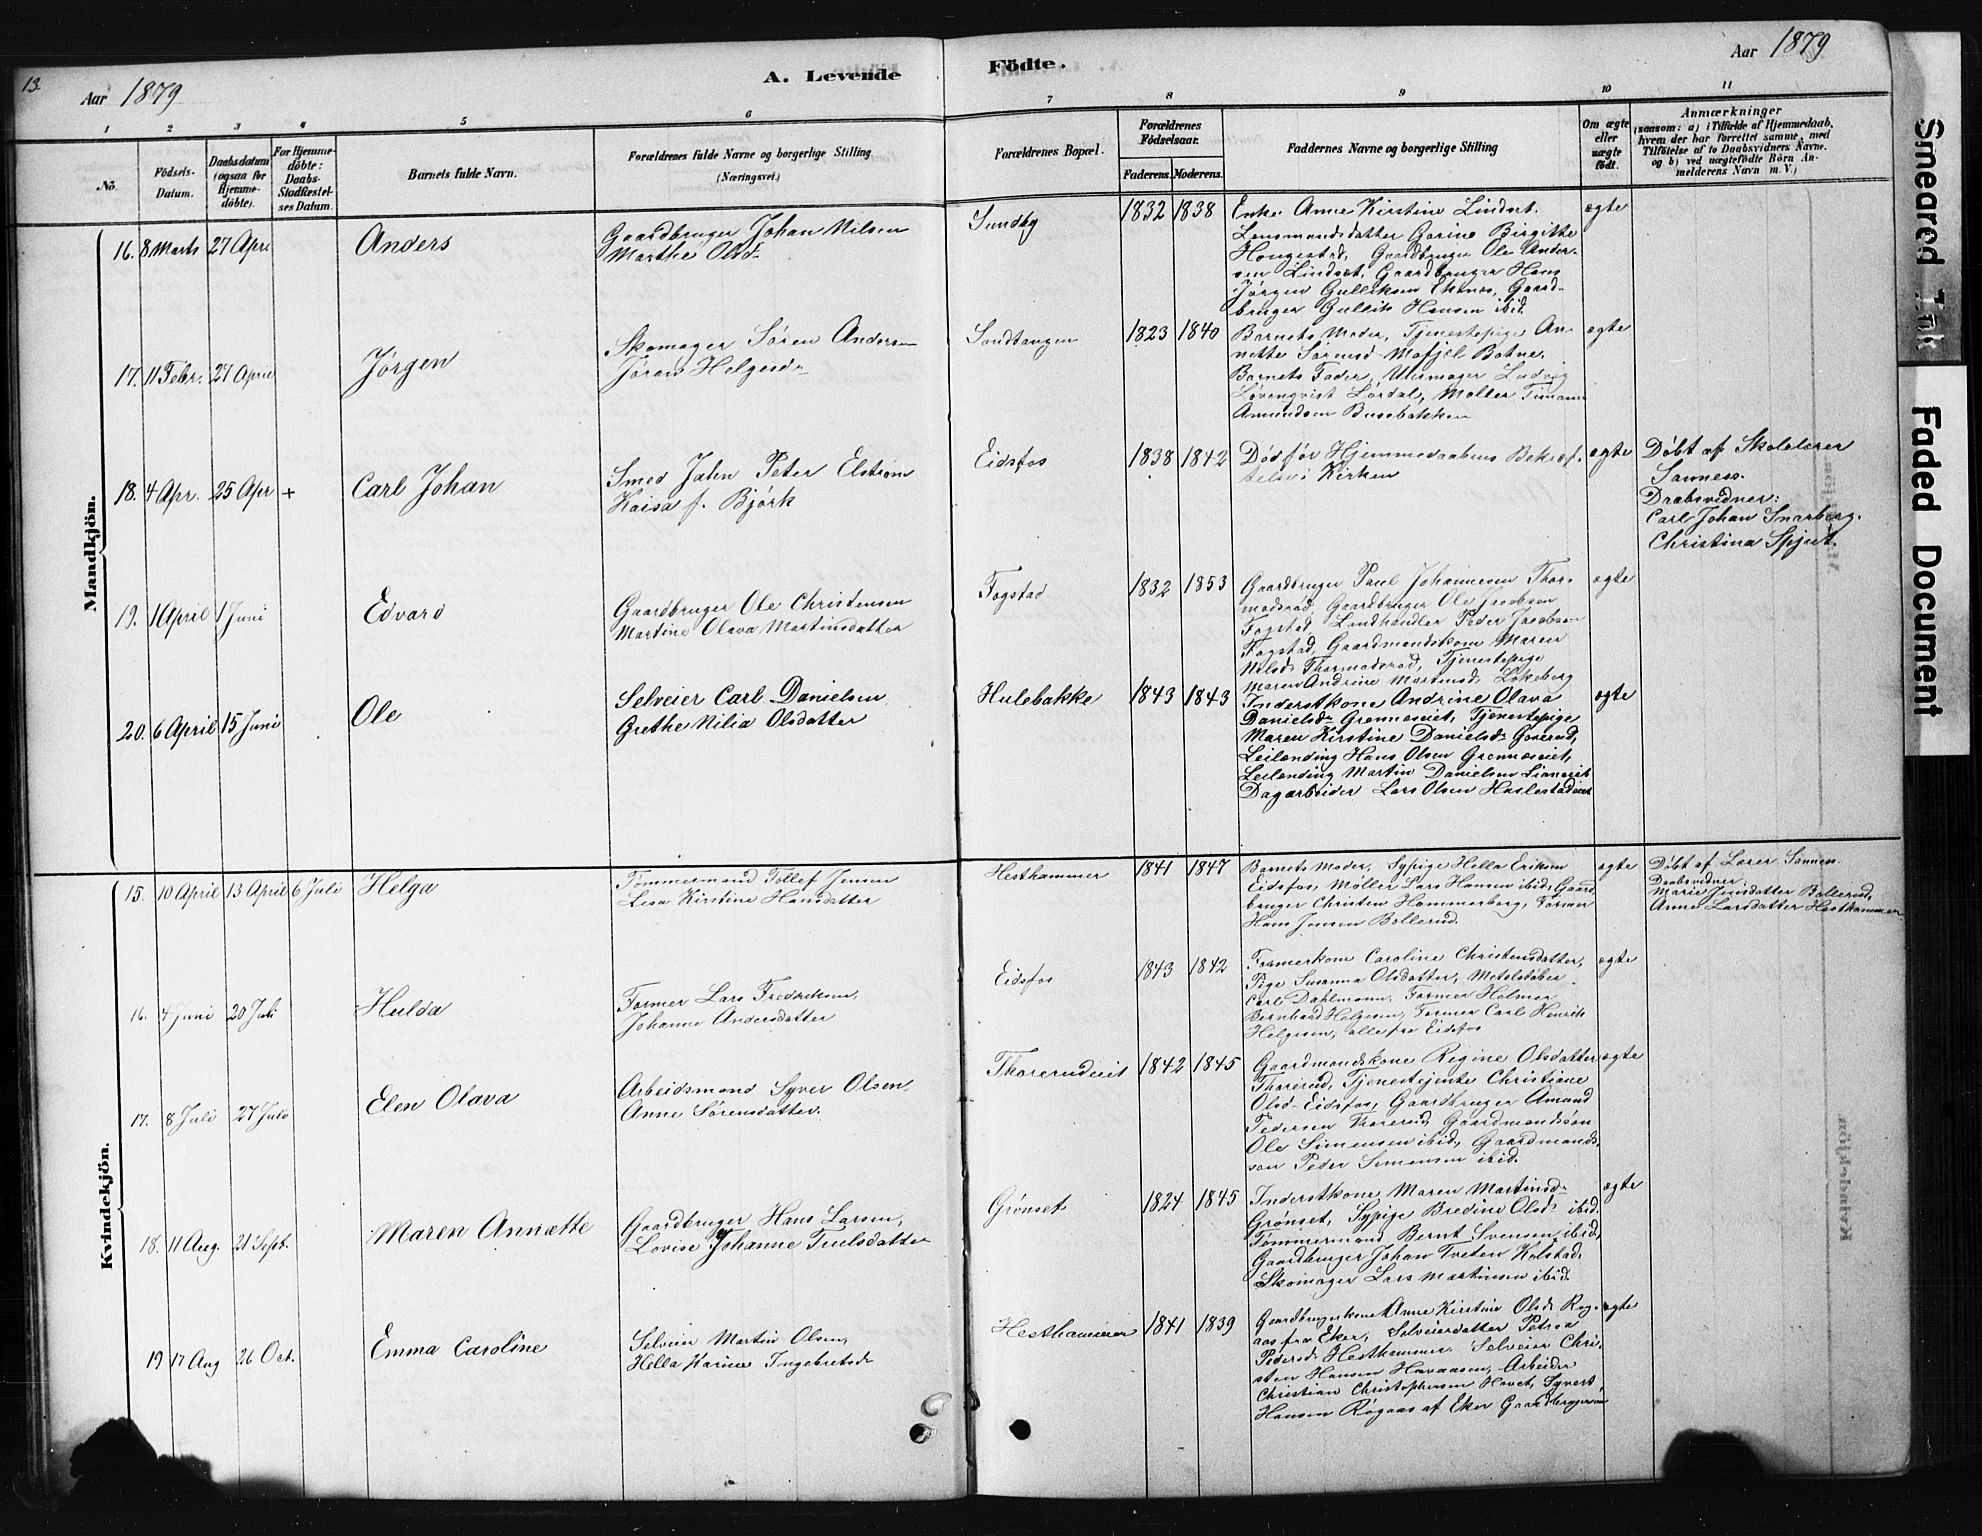 13.
Aar 1879
A. Levende
Födte.
Aar 1879
1 2 3 4 5 6 7 8 9 10 11
No.
Födsels-
Datum.
Daabsdatum
(ogsaa for
Hjemme-
döbte).
For Hjemme-
döbte:
Daabs-
Stadfæstel-
ses Datum.
Barnets fulde Navn.
Forældrenes fulde Navne og borgerlige Stilling
(Næringsvei.)
Forældrenes Bopæl.
Forældrenes
Födselsaar.
Faderens. Moderens.
Faddernes Navne og borgerlige Stilling
Om ægte
eller
uægte
födt.
Anmærkninger
(saasom: a) i Tilfælde af Hjemmedaab,
hvem der har forrettet samme, med
Tilföielse af to Daabsvidners Navne.
og b) ved uægtefödte Börn An-
melderens Navn m. V.)
Mandkjön.
16. 8 Marts 27 Apri
Anders
Gaardbruger Johan Nilsen
Marthe Olsd
Sundby
1832 1838
Enke Anne Kirstine Lindset.
Lensmandsdatter Gorine Birgitte
Hougestad, Gaardbruger Ole Ander-
sen Lindset, Gaardbruger Hans
Jörgen Gulliksen Ekenes, Gaard-
bruger Gullik Hansen ibid
ægte
17. 11 Febr. 27 April
Jörgen
Skomager Sören Andersen
Jöran Helgesd
Sandtangen
1823 1840
Barnets Moder, Tjenestepige An-
nette Sörensd Mofjel Botne,
Barnets Fader, Uhrmager Ludvig
Lövenqvist Lördal, Möller Timann
Amundsen Bussebakken
ægte
18. 4 Apr. 25 Apr +
Carl Johan
Smed John Peter Elström
Kaisa f. Björk
Eidsfos
1838 1842
Död för Hjemmedaabens Bekræf-
telse i Kirken
ægte
Döbt af Skolelærer
Sanness.
Daabsvidner:
Carl Johan Snarberg.
Christina Spjut.
19. 1 April 1 Juni
Edvard
Gaardbruger Ole Christensen
Martine Olava Martinsdatter
Fogstad
1832 1853
Gaardbruger Paul Johannesen Thor-
modsrød, Gaardbruger Ole Jacobsen
Fogstad, Landhandler Peder Jacobsen
Fogstad, Gaardmandskone Maren
Nilsd. Thormodsrød, Tjenestepige
Maren Andrine Martinsd. Lökeberg
ægte
20. 6 April 15 Juni
Ole
Selveier Carl Danielsen
Grethe Nilia Olsdatter
Hulebakke
1843 1843
Inderstkone Andrine Olava
Danielsd Grenneseiet, Tjenestepige
Maren Kirstine Danielsd Goverud,
Leilænding Hans Olsen Grenneseiet,
Leilænding Martin Danielsen Lianeiet
Dagarbeider Lars Olsen Haslestadeiet
ægte
Kvindekjön.
15. 10 April 13 April 6 Juli
Helga
Tömmermand Tollef Jensen
Lisa Kirstine Hansdatter
Hesthammer
1841 1847
Barnets Moder, Sypige Hella Eriksen
Eidsfos, Möller Lars Hansen ibid, Gaard-
bruger Christen Hammerborg, Former
Hans Jensen Bollerud.
ægte
Döbt af Lærer Sanness.
Daabsvidner:
Marie Jensdatter Bollerud,
Anne Larsdatter Hesthammer
16. 4 Juni 20 Juli
Hulda
Former Lars Fredriksen,
Johanne Andersdatter
Eidsfos
1843 1842
Formerkone Caroline Christensdatter,
Pige Susanna Olsdatter, Metelstöber
Carl Dahlmann, Former Holmer
Bernhard Helgesen, Former Carl Henrik
Helgesen, alle fra Eidsfos
ægte
17. 8 Juli 27 Juli
Elen Olava
Arbeidsmand Syver Olsen,
Anne Sörensdatter
Thorerudeiet
1842 1845
Gaardmandskone Regine Olsdatter
Thorerud, Tjenestejente Christiane
Olsd Eidsfos, Gaardbruger Amund
Pedersen Thorerud, Gaardmandssön
Ole Simensen ibid, Gaardmands-
son Peder Simensen ibid.
ægte
18. 11 Aug. 21 Sept.
Maren Annætte
Gaardbruger Hans Larsen,
Lovise Johanne Truelsdatter
Grönset
1824 1845
Inderstkone Maren Martinsd
Grönset, Sypige Bredine Olsd. ibid.
Tömmermand Bernt Svensen ibid,
Gaardbruger Johan Tveten Kolstad,
Skomager Lars Martinsen ibid.
ægte
19 17 Aug 26 Oct.
Emma Caroline
Selveier Martin Olsen,
Hella Karine Ingebretsd
Hesthammer
1841 1839
Gaardbrugerkone Anne Kirstine Olsd. Rög-
aas fra Eker, Selveierdatter Petrea
Pedersd. Hesthammer. Selveier Chri-
sten Hansen Havaasen, Arbeider
Christian Christophersen Hovet, Syvert
Hansen Rögaas af Eker Gaardbrugersön
ægte
Smeared Ink
Faded Document